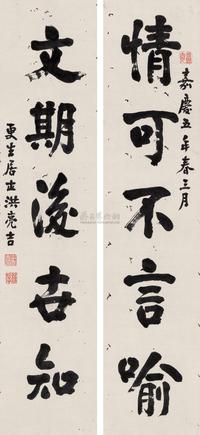 嘉慶五年春三月
情可不言喻
文期後世知
更生居士洪亮吉